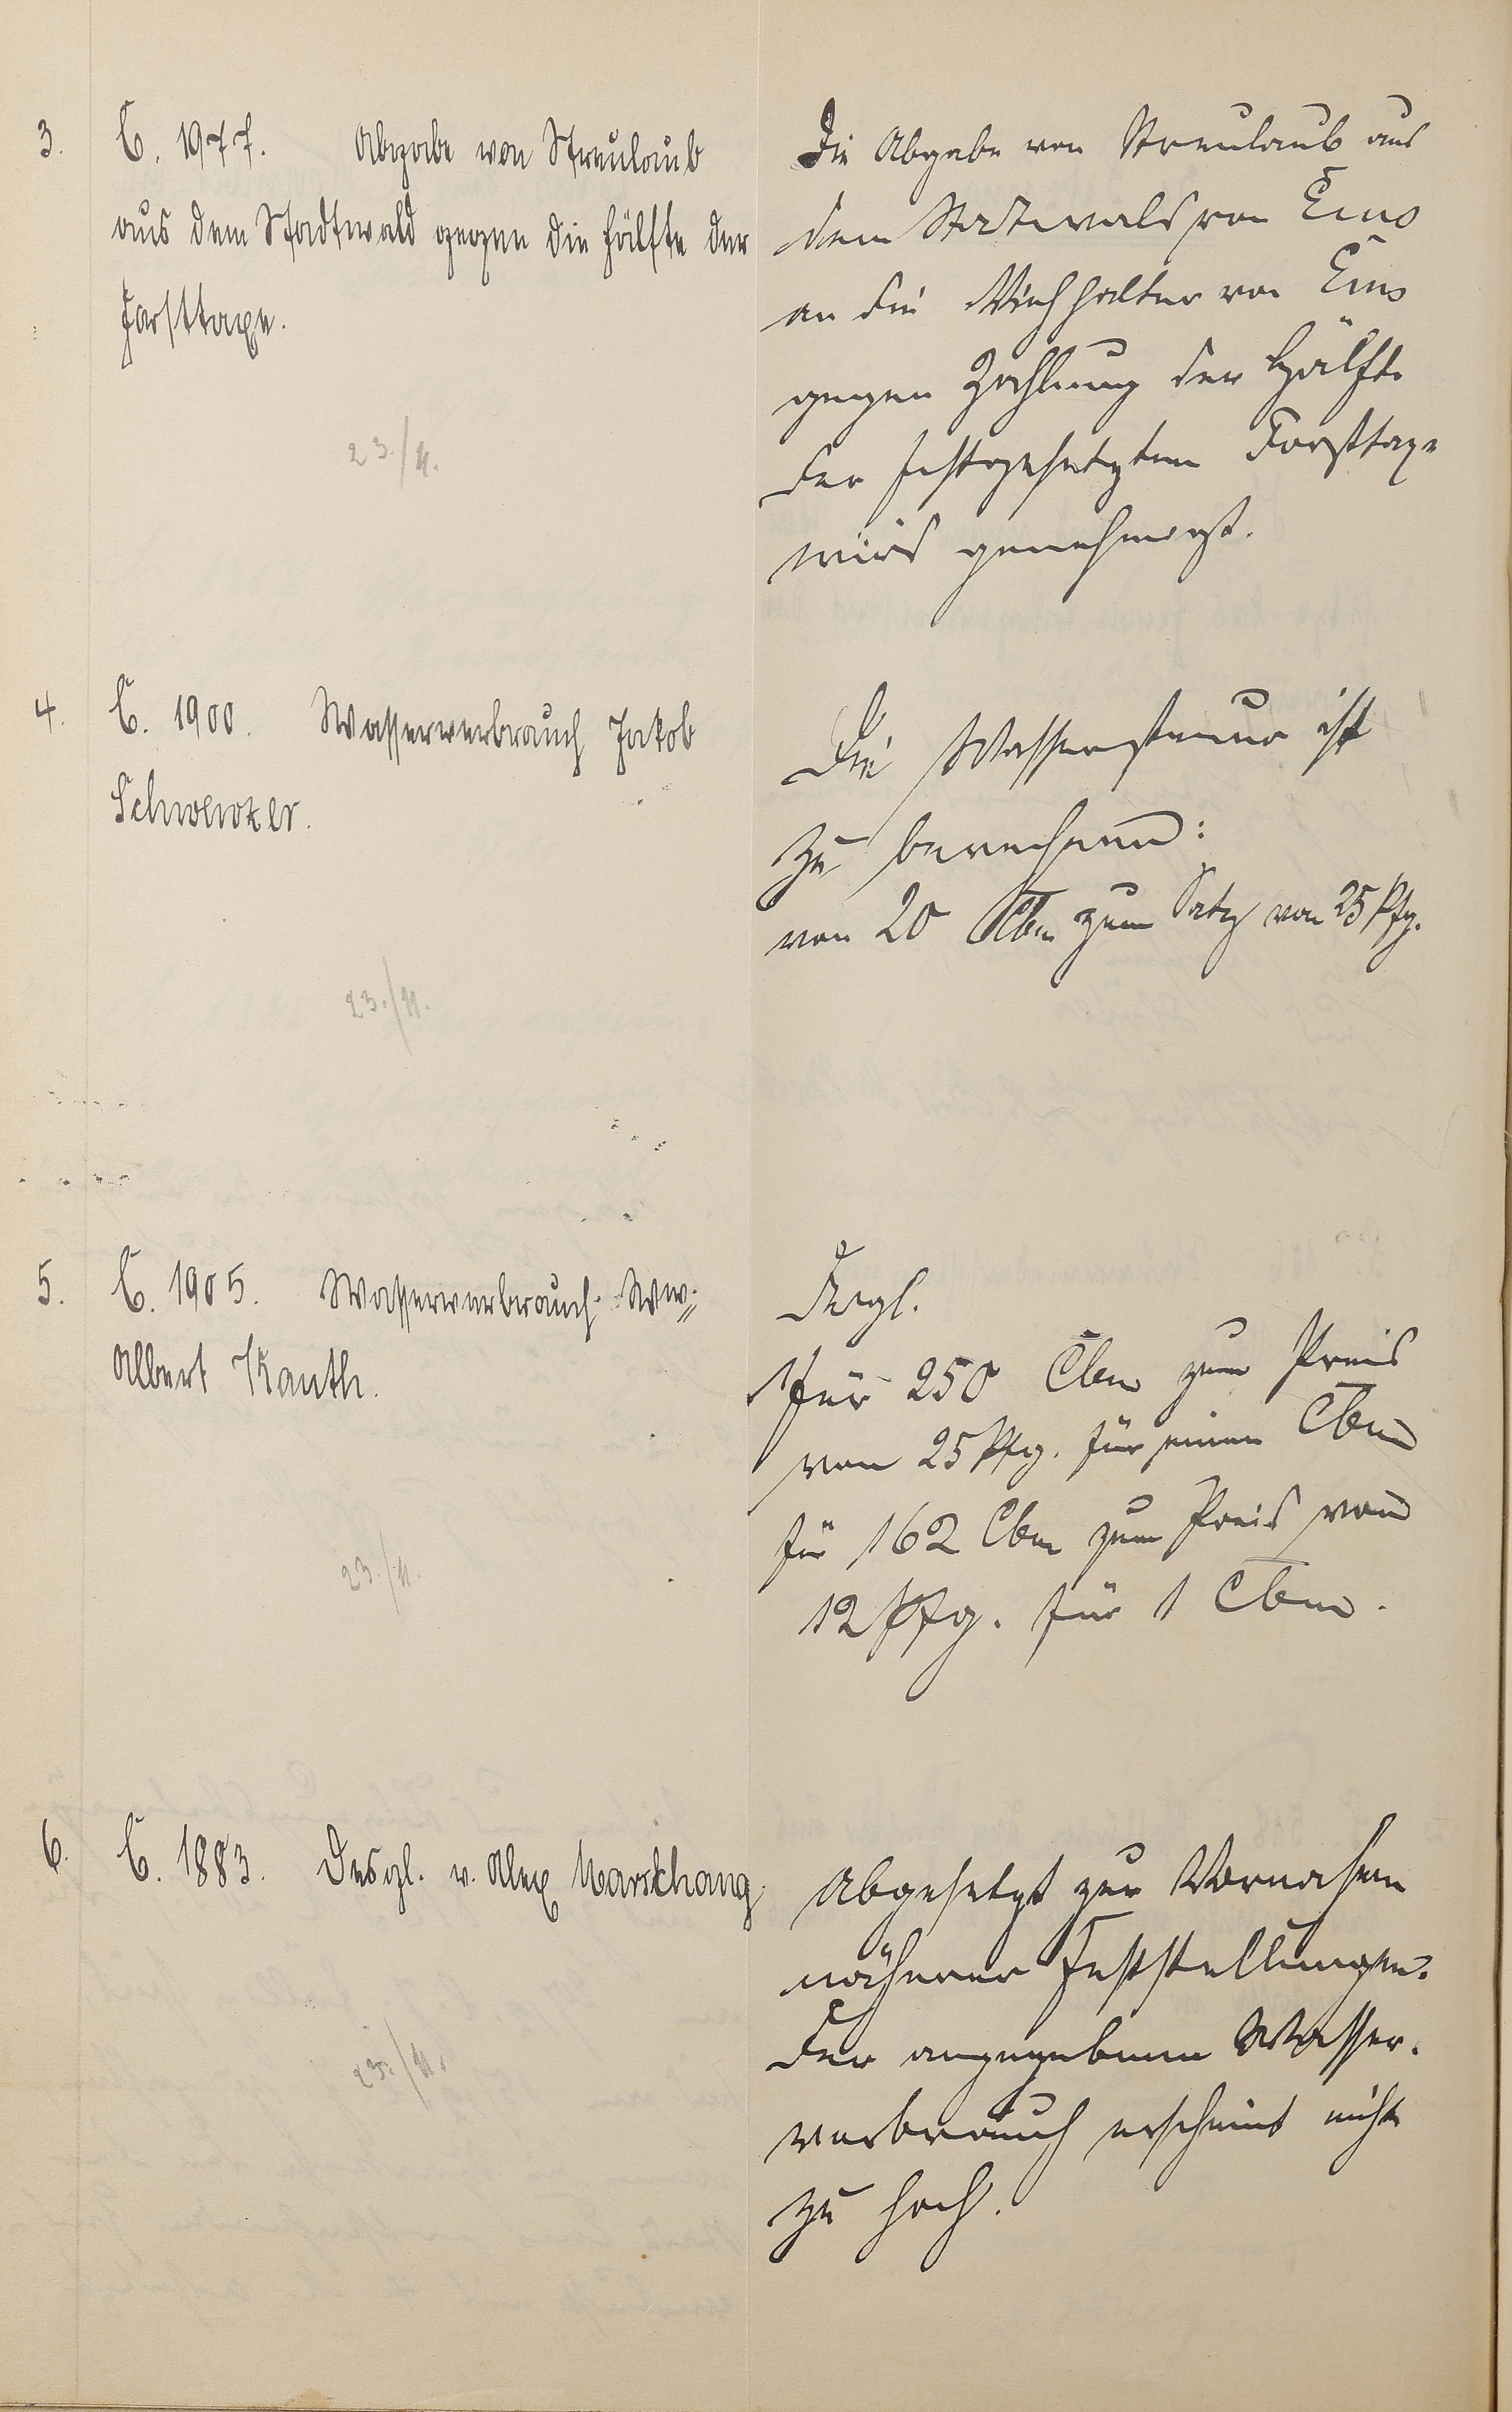 3. C. 1977. Abgabe von Streulaub
aus dem Stadtwald gegen die Hälfte der
Forsttaxe.
23./11.
Die Abgabe von Streulaub aus
dem Stadtwald von Ems
an die Viehhalter von Ems
gegen Zahlung der Hälfte
der festgesetzten Forsttaxe
wird genehmigt.
4. C. 1900. Wasserverbrauch Jakob
Schwenker.
23./11.
Die Wassersteuer ist
zu berechnen:
von 20 Cbm zum Satz von 25 Pfg.
5. C. 1905. Wasserverbrauch Ww.
Albert Kauth.
23./11.
Desgl.
für 250 Cbm zum Preis
von 25 Pfg. für einen Cbm
für 162 Cbm zum Preis von
12 Pfg. für 1 Cbm.
6. C. 1883. Desgl. v. Alex Marschang.
23./11.
Abgesetzt zur Vornahme
näherer Feststellungen.
Der angegebene Wasser-
verbrauch erscheint nicht
zu hoch.